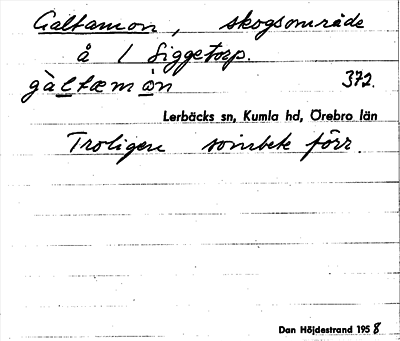 Galtamon, skogsområde
å 1 Siggetorp.
gàltæm ȯn 372.
Lerbäcks sn, Kumla hd, Örebro län
Troligen svinbete förr
Dan Höjdestrand 1958